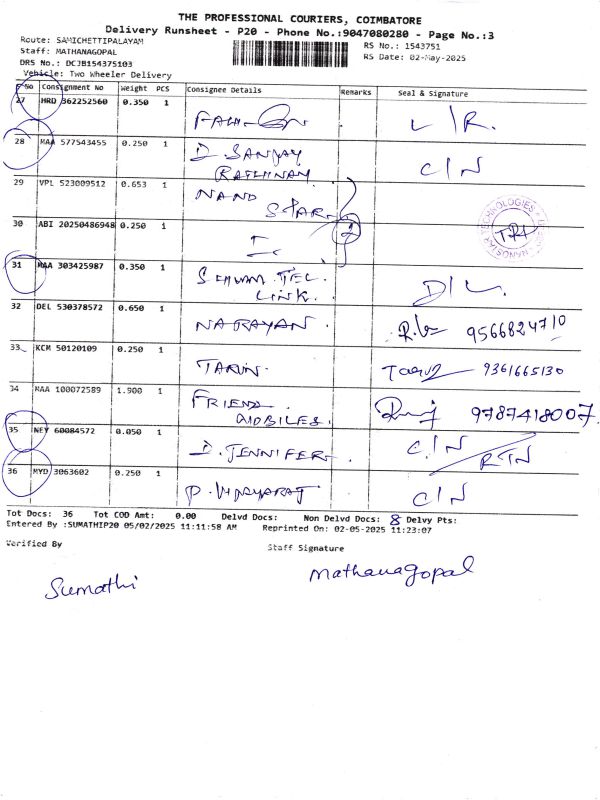 THE PROFESSIONAL COURIERS, COIMBATORE
Delivery Runsheet - P20 - Phone No.:9047080280 - Page No.:3
Route: SAMICHETTIPALAYAM
RS No.: 1543751
Staff: MATHANAGOPAL
RS Date: 02-May-2025
DRS No.: DCJB154375103
Vehicle: Two Wheeler Delivery
S No Consignment No Weight PCS Consignee Details Remarks Seal & Signature
27 HRD 362252560 0.350 1 L/R.
28 MAA 577543455 0.250 1 D. SANJAY C/N
RATHINAM
29 VPL 523009512 0.653 1 NAND
STAR
30 ABI 20250486948 0.250 1 2
TECHNOLOGIES
31 MAA 303425987 0.350 1 TEL D/L.
LINK.
32 DEL 530378572 0.650 1 NARAYAN 9566824710
33 KCM 50120109 0.250 1 TARUN. 9361665130
34 MAA 100072589 1.900 1 FRIEND 9787418007
MOBILES.
35 NEY 60084572 0.050 1 D. JENNIFER C/N
RTN
36 MYD 3063602 0.250 1 P. VIJAYARAJ C/N
Tot Docs: 36 Tot COD Amt: 0.00 Delvd Docs: Non Delvd Docs: 8 Delvy Pts:
Entered By :SUMATHIP20 05/02/2025 11:11:58 AM Reprinted On: 02-05-2025 11:23:07
Verified By Staff Signature
Sumathi Mathanagopal